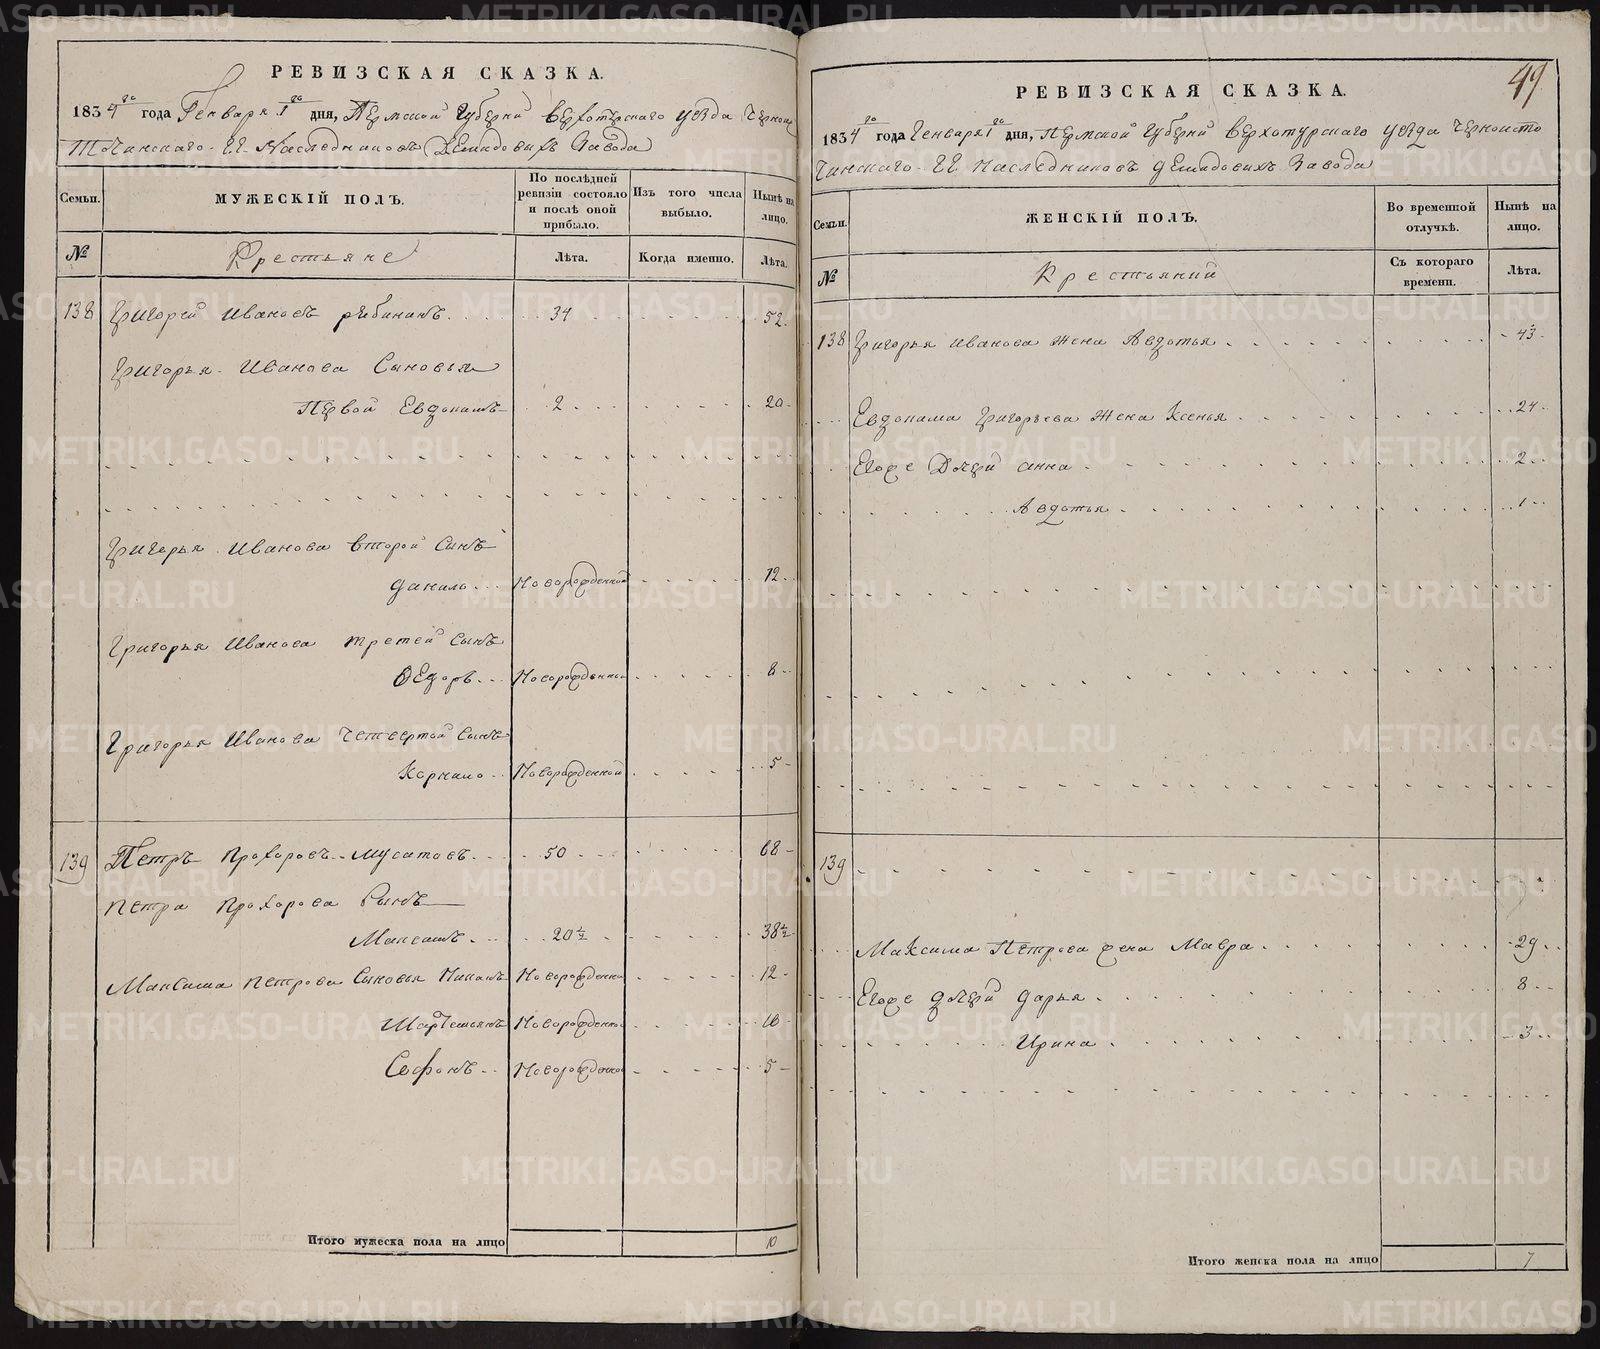 РЕВИЗСКАЯ СКАЗКА.
1834го года Генваря 1го дня, Пермской Губернии Верхотурского уезда Черноис
Точинскаго Г.Г. Наследниковъ Демидовыхъ Завода
Семьи.
МУЖЕСКІЙ ПОЛЪ.
По послѣдней ревизіи состояло и послѣ оной прибыло.
Изъ того числа выбыло.
Нынѣ на лицо.
№
Крестьяне
Лѣта.
Когда именно.
Лѣта.
138 Григорей Ивановъ Рябининъ 34 52
Григорья Иванова Сыновья
Первой Евдокимъ 2 20
Григорья Иванова второй Сынъ
Данило Новорожденной 12
Григорья Иванова третей Сынъ
Ѳедоръ Новорожденной 8
Григорья Иванова Четвертой Сынъ
Корнило Новорожденной 5
139 Петръ Прохоровъ Мусатовъ 50 68
Петра Прохорова Сынъ
Максимъ 20½ 38½
Максима Петрова Сыновья Новорожденной 12
Новорожденной 10
Софонъ Новорожденной 5
Итого мужеска пола на лицо 10
49
РЕВИЗСКАЯ СКАЗКА.
1834го года Генваря 1го дня, Пермской Губернии Верхотурскаго уезда Черноисто
Чинскаго Г.Г. Наследниковъ Демидовыхъ Завода
Семьи.
ЖЕНСКІЙ ПОЛЪ.
Во временной отлучкѣ.
Нынѣ на лицо.
№
Крестьяний
Съ котораго времени.
Лѣта.
138 Григорья Иванова жена Авдотья 43
Евдокима Григорьева жена Ксенья 24
Егоже Дочери Анна 2
Авдотья 1
139
Максима Петрова жена Мавра 29
Егоже дочери Дарья 8
Ирина 3
Итого женска пола на лицо 7
METRIKI.GASO-URAL.RU